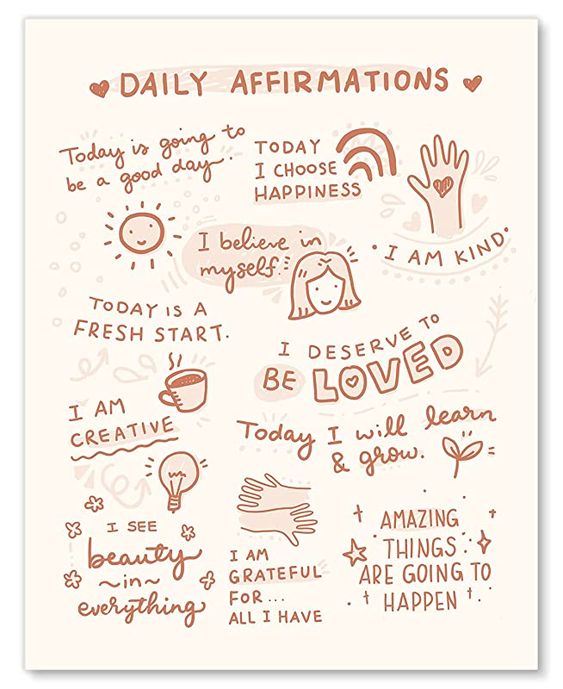 DAILY AFFIRMATIONS
Today is going to
be a good day.
TODAY
I CHOOSE
HAPPINESS
I AM KIND
I believe in
myself.
TODAY IS A
FRESH START.
I DESERVE TO
BE LOVED
I AM
CREATIVE
Today I will learn
& grow.
I SEE
beauty
~in~
everything
I AM
GRATEFUL
FOR...
ALL I HAVE
AMAZING
THINGS
ARE GOING TO
HAPPEN